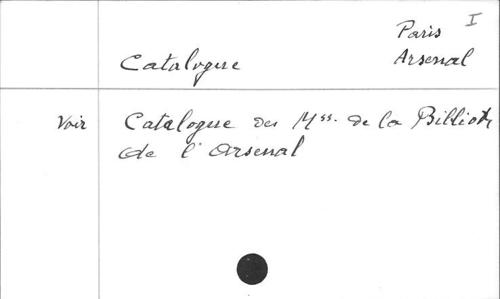 I
Paris
Catalogue Arsenal
Voir Catalogue des Mss. de la Biblioth
de l'Arsenal